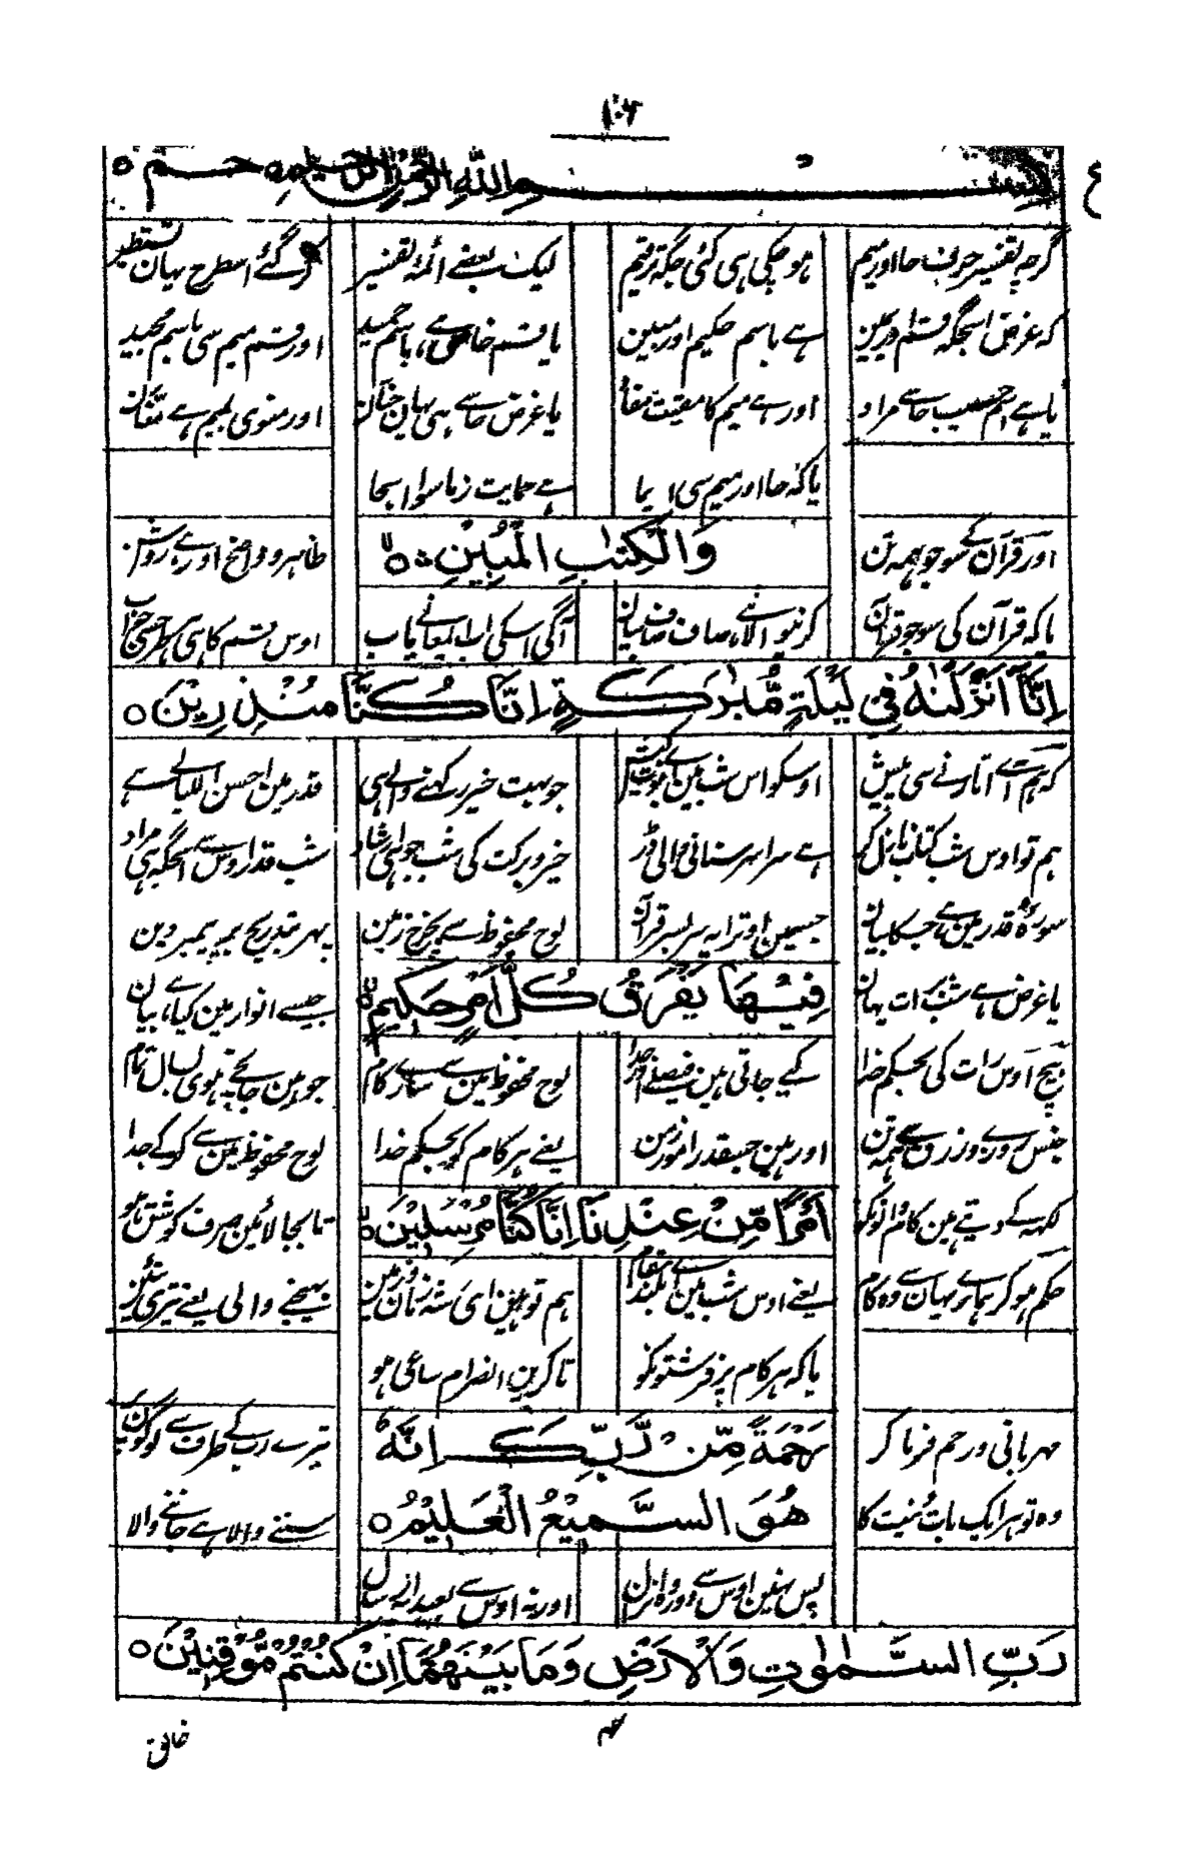 ۱۰۶
بسم اللہ الرحمن الرحیم حٰم ○
گرچہ تفسیر حروف حا اور میم ہو چکی ہی کئی جگہ ترقیم لیک بعضے ائمۂ تفسیر کر گئے اسطرح یہان تستطیر
کہ غرض اسجگہ قسم اور یمین ہے باسم حکیم اور مبین یا قسم خا سے ہے باسم حمید اور قسم میم سی باسم مجید
یا ہے اسم حسیب حا سے مراد اور ہے میم کا مقیت مفاد یا غرض حا سے ہی یہان حنان اور منوی بمیم ہے منان
یا کہ حا اور میم سی ایما ہے حمایت زماسوا اسجا
اور قرآن کے سوجو ہمہ تن وَالْكِتٰبِ الْمُبِيْنِ ○ ظاہر و واضح اور ہے روشن
یا کہ قرآن کی سوجو قرآن کرنیوالا ہے صاف صاف بیان آگی اسکی اب اے معانے یاب اوس قسم کا ہی اسطرحسی جواب
اِنَّآ اَنْزَلْنٰهُ فِيْ لَيْلَةٍ مُّبٰرَكَةٍ اِنَّا كُنَّا مُنْذِرِيْنَ ○
کہ ہم نے اتارنے سی پیش اوسکو اس شب مین جو بہت خیر رکھنے والی ہی قدر مین احسن اللیالے ہے
ہم تو اوس شب کتاب نازل کر ہے سراسر سنانی والی ڈر خیر و برکت کی شب جو اہی شاد شب قدر اوس سے اسجگہ ہی مراد
سورۂ قدر مین ہے جسکا بیان جسمین اوترا ہے سربسر قرآن لوح محفوظ سے بچرخ زمین پھر بتدریج بر پیمبر دین
یا غرض ہے شب برات یہان فِيْهَا يُفْرَقُ كُلُّ اَمْرٍ حَكِيْمٍ ○ جیسے انوار مین کیا ہے بیان
بیچ اوس رات کی بحکم خدا کیے جاتی ہین فیصلے لوح محفوظ مین سے سارے کام جو ہین جانچے ہوی بسال تمام
جنس روزے و رزق سے ہمہ تن اور ہین جسقدر امور زمن یعنے ہر کام کو بحکم خدا لوح محفوظ مین سے کرکے جدا
لکھ کے دیتے ہین کام اونکو اَمْرًا مِّنْ عِنْدِنَا اِنَّا كُنَّا مُرْسِلِيْنَ ○ تا بجا لائین صرف کوشش ہو
حکم ہو کر ہمارے یہان سے وہ کام یعنے اوس شب مین بلند مقام ہم تو ہین ای شہ زمان و زمین بھیجنے والی یعنے تیری تئین
یا کہ ہر کام پر فرشتونکو تا کرین انصرام ساعی ہو
مہربانی و رحم فرما کر رَحْمَةً مِّنْ رَّبِّكَ اِنَّهٗ تیرے رب کے طرف سے لوگون پر
وہ تو ہر ایک بات نیت کا هُوَ السَّمِيْعُ الْعَلِيْمُ ○ سننے والا ہے جاننے والا
پس نہین اوس سے دور اور نہ اوس سے بعید
رَبِّ السَّمٰوٰتِ وَالْاَرْضِ وَمَا بَيْنَهُمَا اِنْ كُنْتُمْ مُّوْقِنِيْنَ ○
خالق